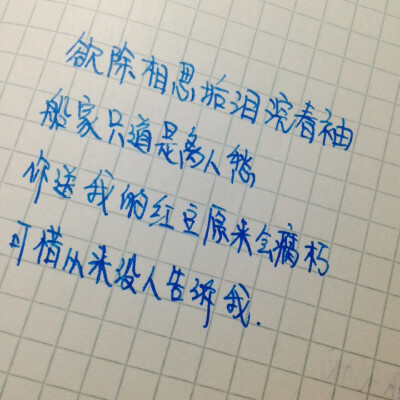 欲除相思拈泪浣春袖
船家只道是离人愁
你送我的红豆原来会腐朽
可惜从来没人告诉我.